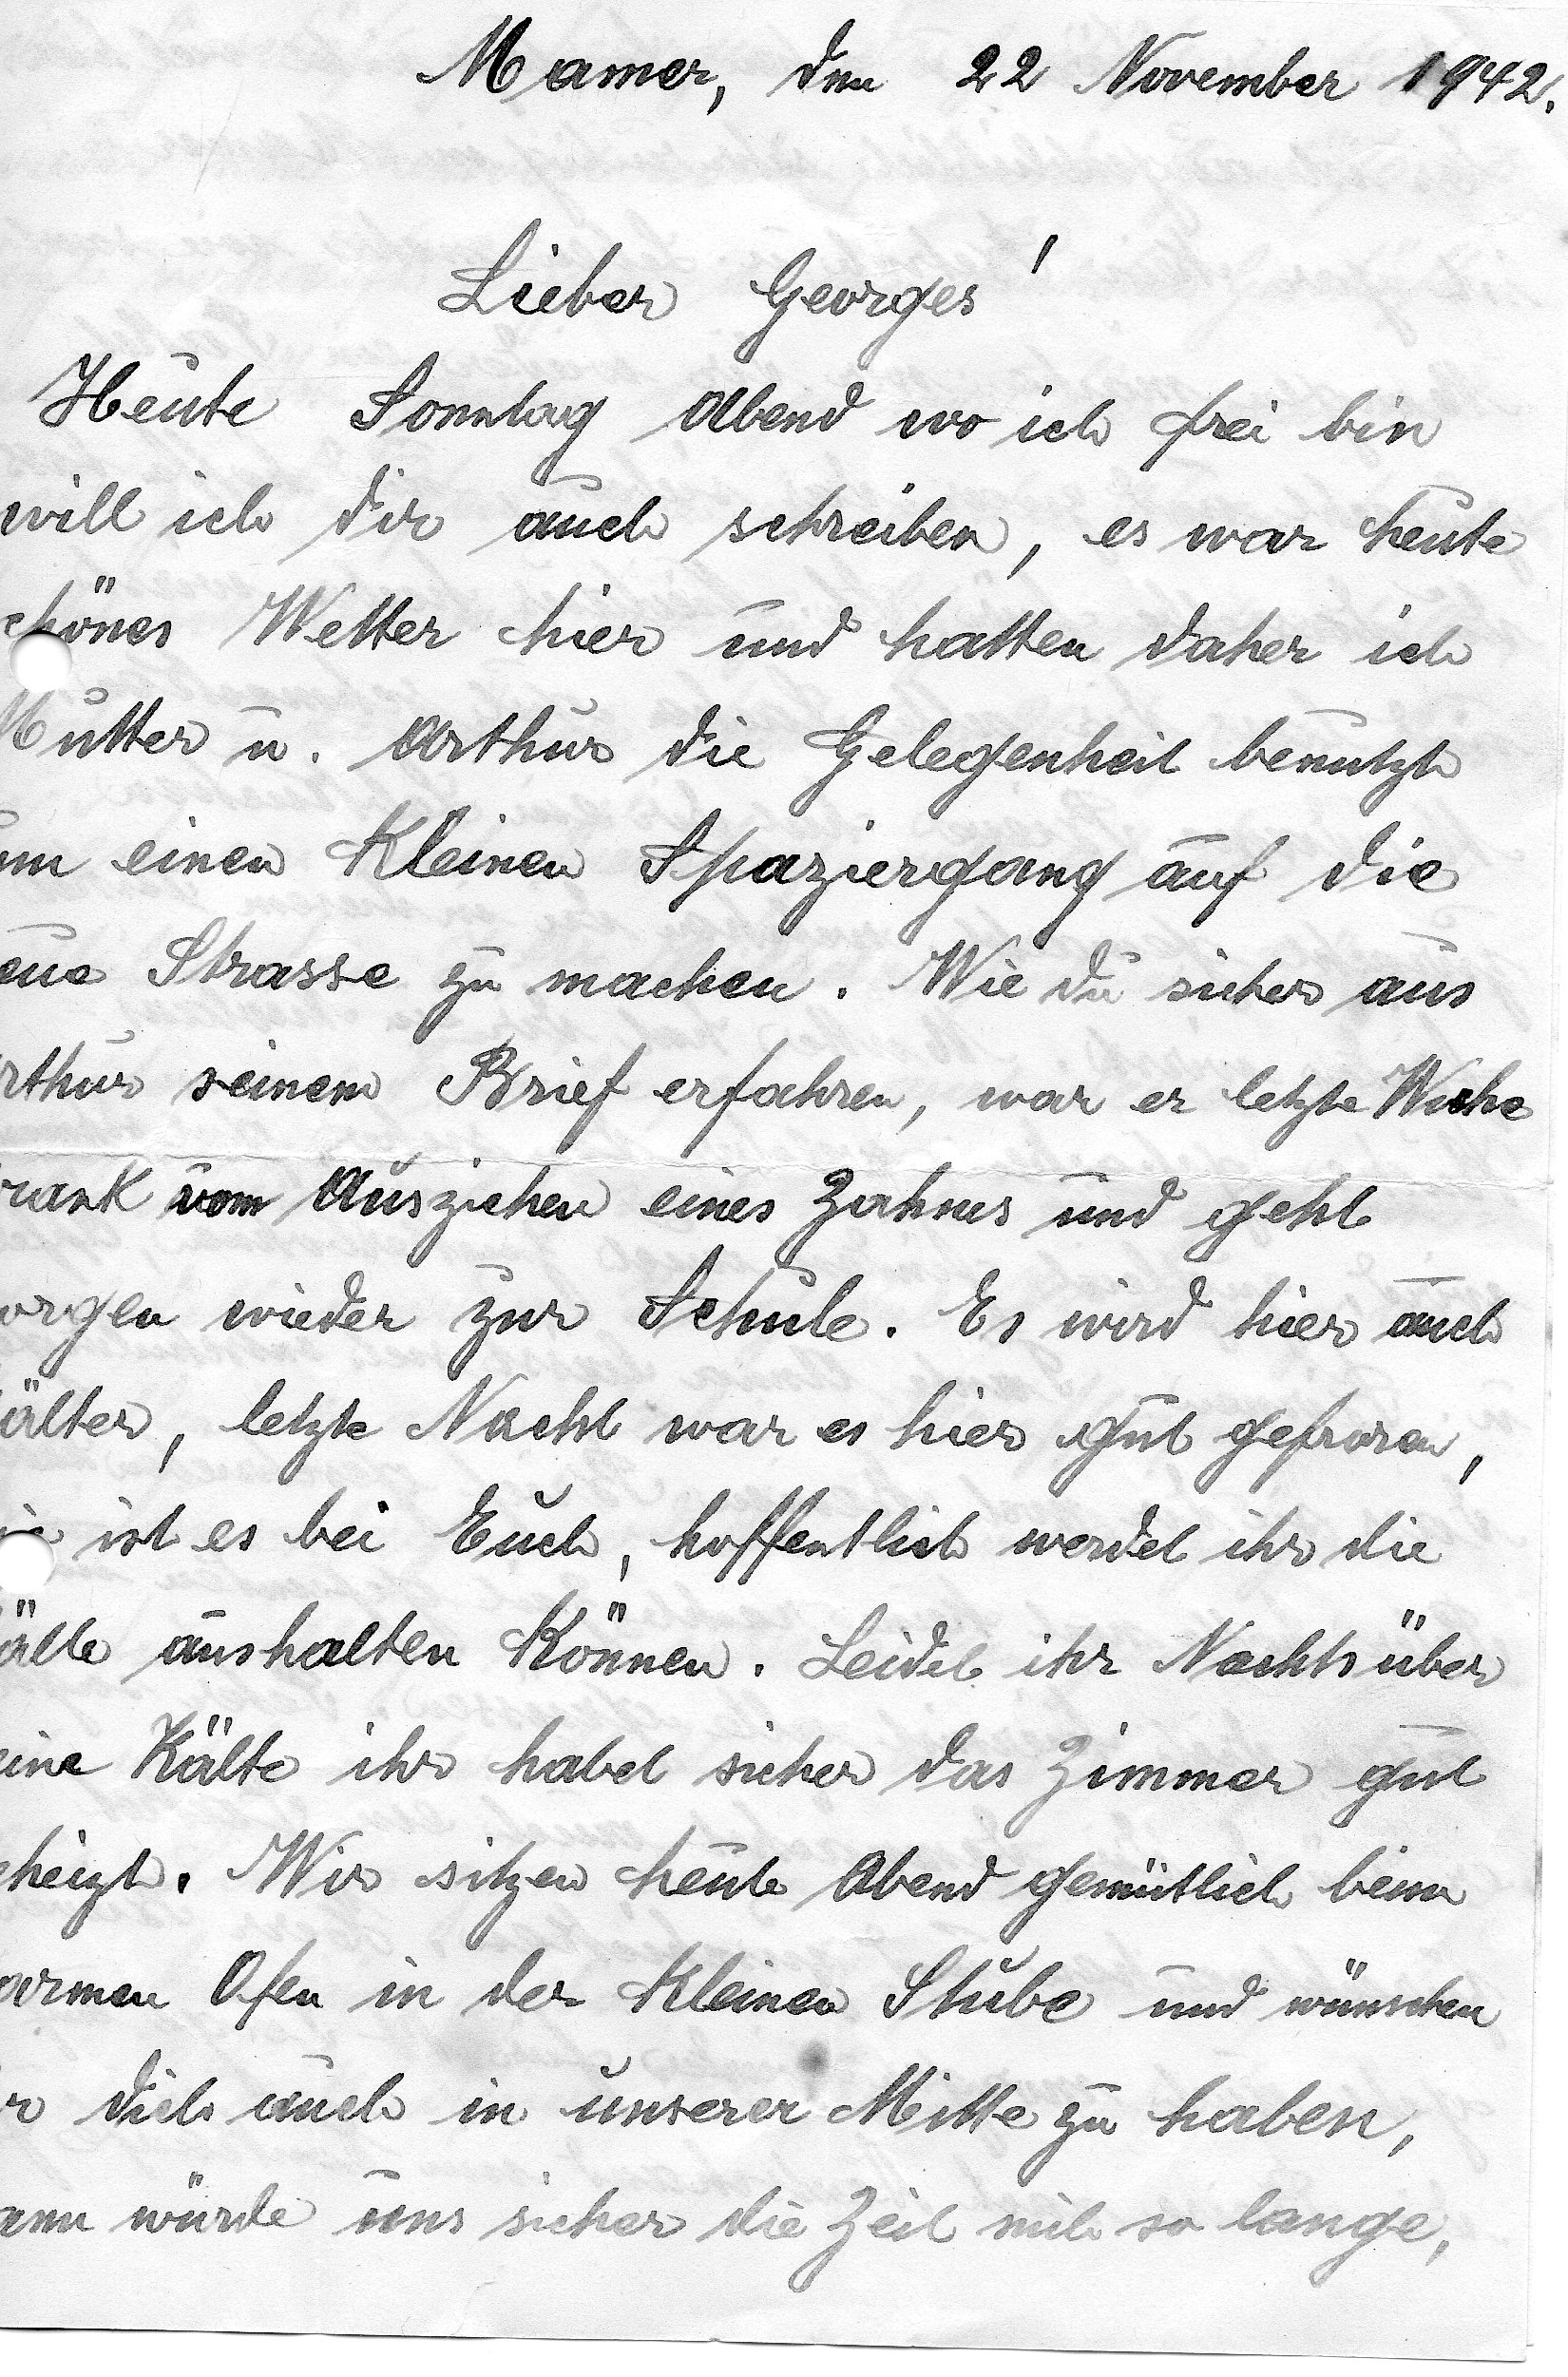 Mamer, den 22 November 1942.
Lieber Georges!
Heute Sonntag Abend wo ich frei bin
will ich dir auch schreiben, es war heute
chönes Wetter hier und hatten daher ich
Mutter u. Arthur die Gelegenheit benutzt
um einen Kleinen Spaziergang auf die
eue Strasse zu machen. Wie du sicher aus
rthur seinem Brief erfahren, war er letzte Woche
rank vom Ausziehen eines Zahnes und geht
orgen wieder zur Schule. Es wird hier auch
älter, letzte Nacht war es hier gut gefroren,
ie ist es bei Euch, hoffentlich werdet ihr die
älte aushalten Können. Leidet ihr Nachts über
eine Kälte ihr habet sicher das Zimmer gut
eheizt. Wir sitzen heute Abend gemütlich beim
armen Ofen in der Kleinen Stube und wünschen
r dich auch in unserer Mitte zu haben,
ann würde uns sicher die Zeit nit so lange,